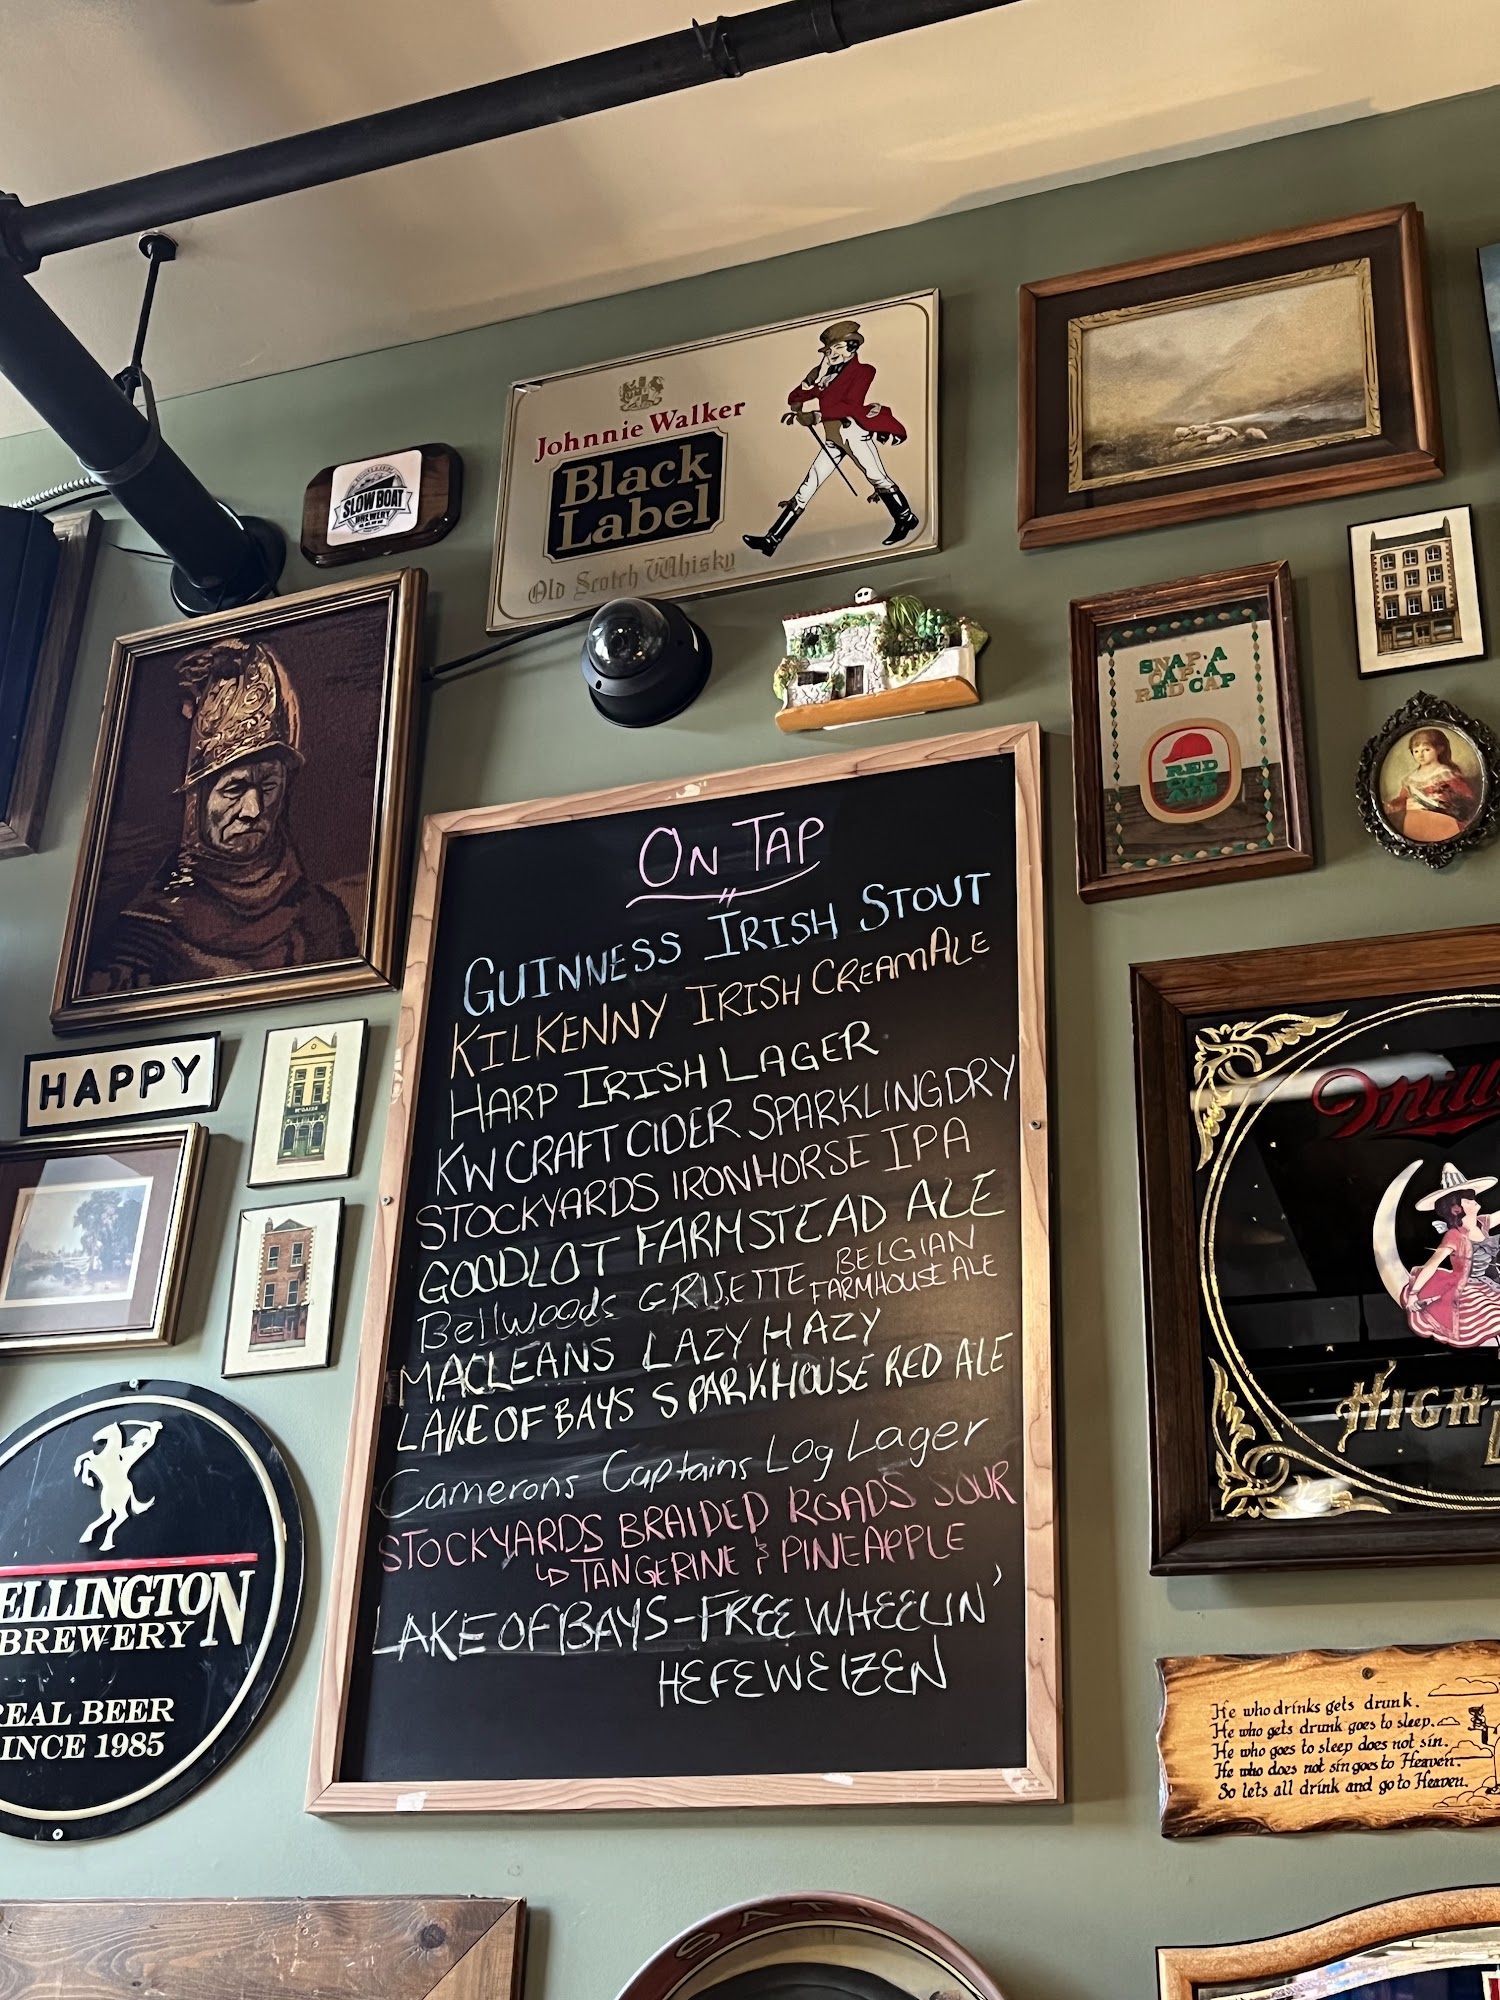 Johnnie Walker
Black
Label
Old Scotch Whisky
SLOW BOAT
BREWERY
SNAP·A
CAP·A
RED CAP
RED
CAP
ALE
ON TAP
GUINNESS IRISH STOUT
KILKENNY IRISH CREAM ALE
HARP IRISH LAGER
KW CRAFT CIDER SPARKLING DRY
STOCKYARDS IRONHORSE IPA
GOODLOT FARMSTEAD ALE
Bellwoods GRISETTE BELGIAN
FARMHOUSE ALE
MACLEANS LAZY HAZY
LAKE OF BAYS SPARKHOUSE RED ALE
Camerons Captains Log Lager
STOCKYARDS BRAIDED ROADS SOUR
↳ TANGERINE & PINEAPPLE
LAKE OF BAYS - FREE WHEELIN'
HEFEWEIZEN
HAPPY
ELLINGTON
BREWERY
REAL BEER
INCE 1985
Mill
HIGH
He who drinks gets drunk.
He who gets drunk goes to sleep.
He who goes to sleep does not sin.
He who does not sin goes to Heaven.
So lets all drink and go to Heaven.